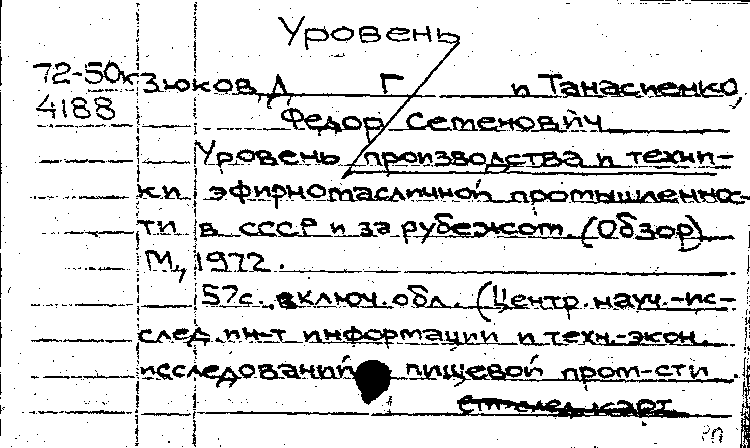 Уровень
72-50к Зюков, Д Г и Танасиенко,
4188 Федор Семенович
Уровень производства и техни-
ки эфирномасличной промышленнос-
ти в СССР и за рубежом. (Обзор)
М., 1972.
57с. включ. обл. (Центр. науч.-ис-
след. ин-т информации и техн.-экон.
исследований пищевой пром-сти.
см след карт